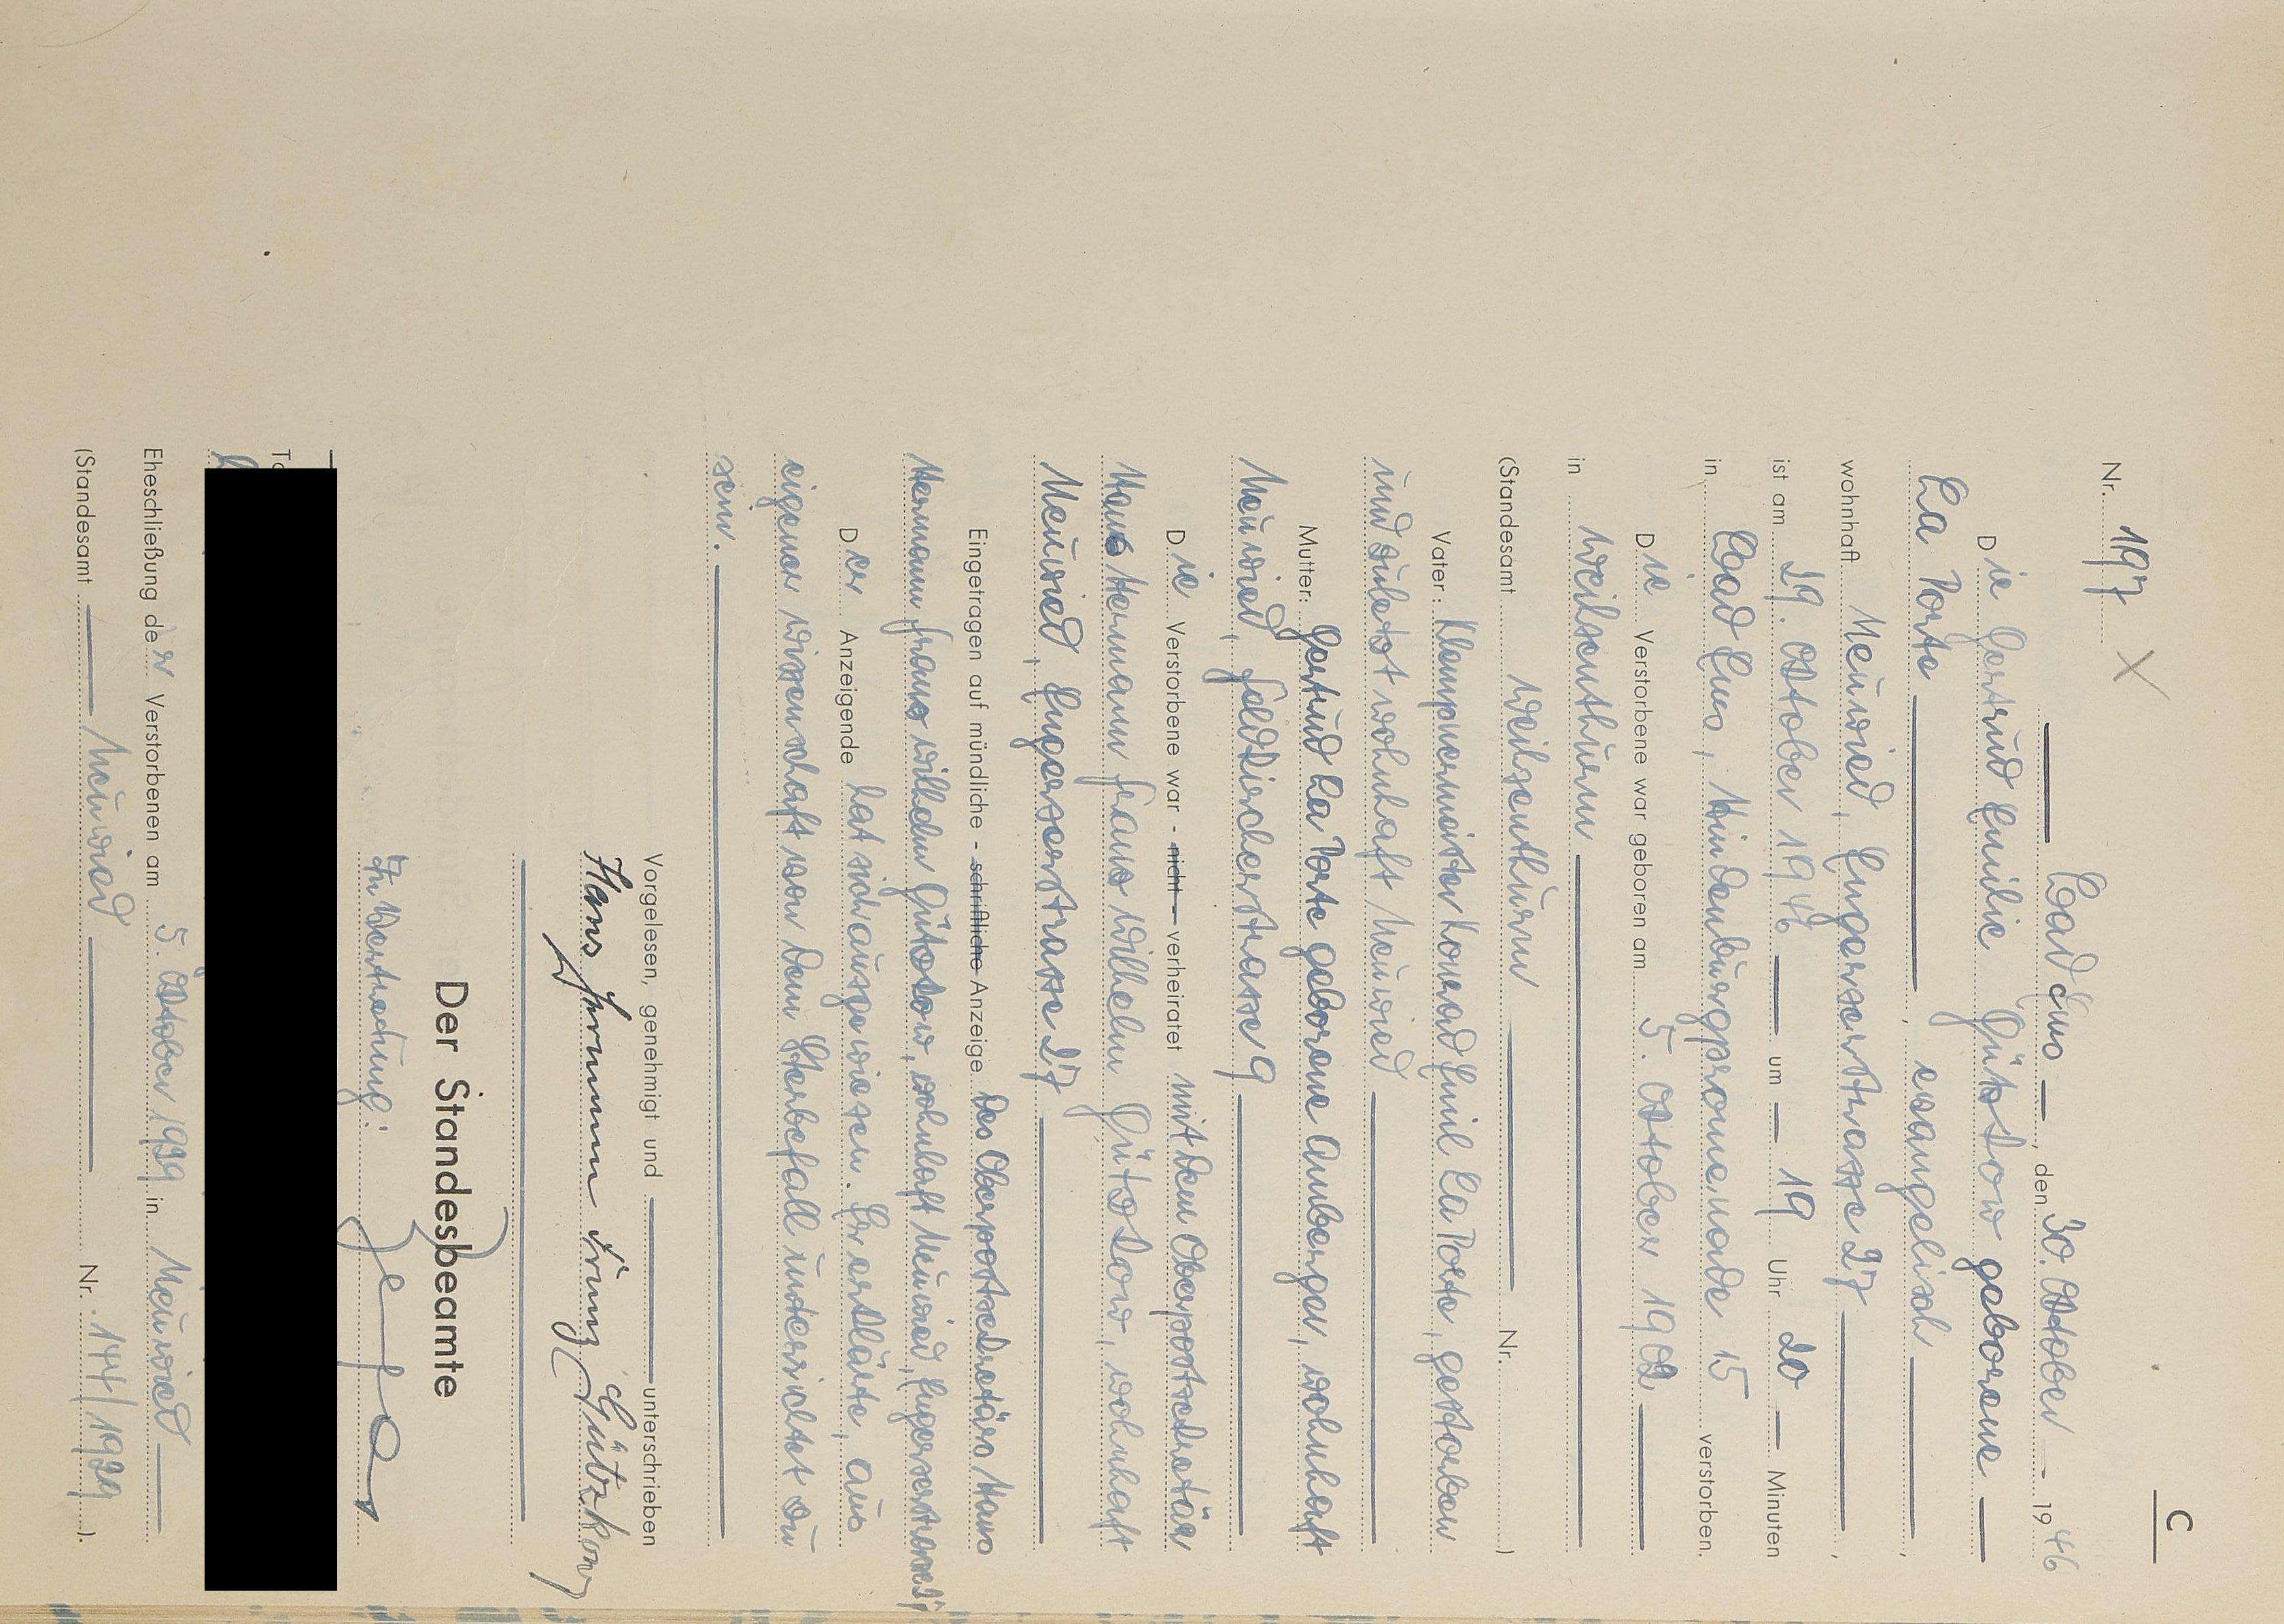 C
Nr. 197
Bad Ems, den 30. Oktober 1946
Die Gertrud Emilie Gützkow geborene
La Porte, evangelisch,
wohnhaft Neuwied, Engerserstrasse 27,
ist am 29. Oktober 1946 um 19 Uhr 20 Minuten
in Bad Ems, Hindenburgpromenade 15 verstorben.
Die Verstorbene war geboren am 5. Oktober 1902
in Weilsenthurm
(Standesamt Weilsenthurm Nr. )
Vater: Klempnermeister Konrad Emil La Porte, gestorben
und zuletzt wohnhaft Neuwied
Mutter: Gertrud La Porte geborene Amberger, wohnhaft
Neuwied, Feldkircherstrasse 9
Die Verstorbene war - nicht - verheiratet mit dem Oberpostsekretär
Hans Hermann Franz Wilhelm Gützkow, wohnhaft
Neuwied, Engerserstrasse 27
Eingetragen auf mündliche - schriftliche Anzeige des Oberpostsekretärs Hans
Hermann Franz Wilhelm Gützkow, wohnhaft Neuwied, Engerserstrasse 27
Der Anzeigende hat sich ausgewiesen. Er erklärte, aus
eigener Wissenschaft von dem Sterbefall unterrichtet zu
sein.
Vorgelesen, genehmigt und unterschrieben
Hans Hermann Franz Gützkow
Der Standesbeamte
In Vertretung:
Eheschließung der Verstorbenen am 5. Oktober 1929 in Neuwied
(Standesamt Neuwied Nr. 144/1929 ).